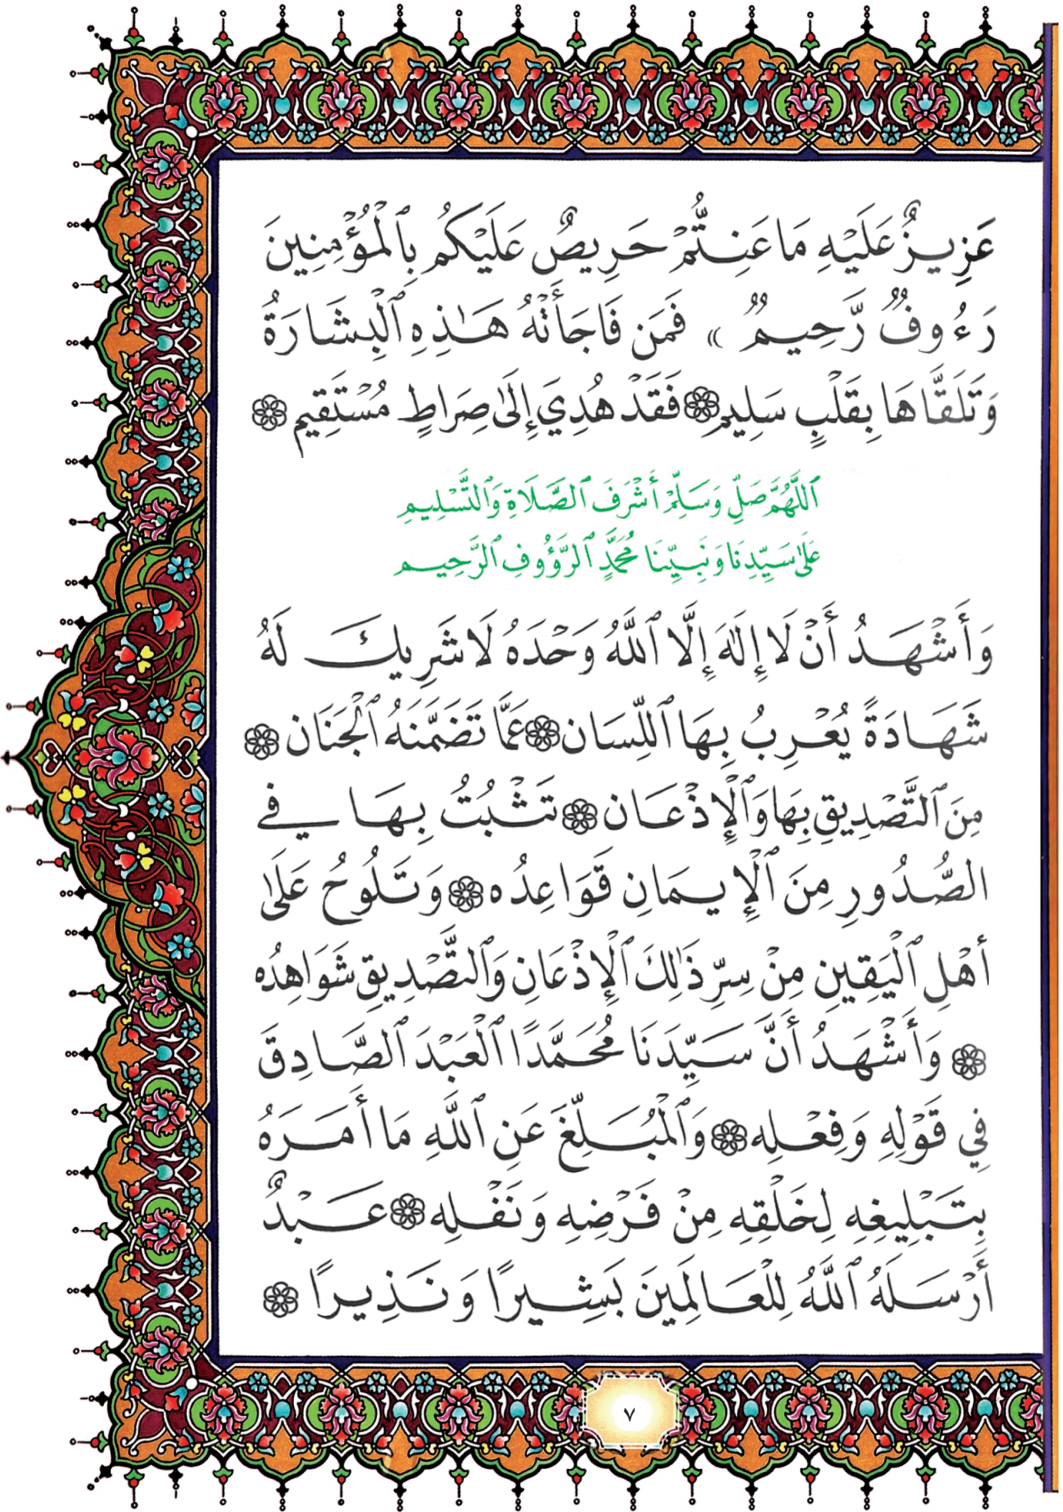 عَزِيزٌ عَلَيْهِ مَا عَنِتُّمْ حَرِيصٌ عَلَيْكُم بِٱلْمُؤْمِنِينَ
رَءُوفٌ رَّحِيمٌ » فَمَن فَاجَأَتْهُ هَـٰذِهِ ٱلْبِشَارَةُ
وَتَلَقَّاهَا بِقَلْبٍ سَلِيمٍ ۞ فَقَدْ هُدِيَ إِلَىٰ صِرَاطٍ مُسْتَقِيمٍ ۞
ٱللَّهُمَّ صَلِّ وَسَلِّمْ أَشْرَفَ ٱلصَّلَاةِ وَٱلتَّسْلِيمِ
عَلَىٰ سَيِّدِنَا وَنَبِيِّنَا مُحَمَّدٍ ٱلرَّؤُوفِ ٱلرَّحِيمِ
وَأَشْهَدُ أَنْ لَا إِلَٰهَ إِلَّا ٱللَّهُ وَحْدَهُ لَا شَرِيكَ لَهُ
شَهَادَةً يُعْرِبُ بِهَا ٱللِّسَان ۞ عَمَّا تَضَمَّنَهُ ٱلْجَنَان ۞
مِنَ ٱلتَّصْدِيقِ بِهَا وَٱلْإِذْعَان ۞ تَثْبُتُ بِهَا فِي
ٱلصُّدُورِ مِنَ ٱلْإِيمَانِ قَوَاعِدُه ۞ وَتَلُوحُ عَلَىٰ
أَهْلِ ٱلْيَقِينِ مِنْ سِرِّ ذَٰلِكَ ٱلْإِذْعَانِ وَٱلتَّصْدِيقِ شَوَاهِدُه
۞ وَأَشْهَدُ أَنَّ سَيِّدَنَا مُحَمَّدًا ٱلْعَبْدَ ٱلصَّادِقَ
فِي قَوْلِهِ وَفِعْلِه ۞ وَٱلْمُبَلِّغَ عَنِ ٱللَّهِ مَا أَمَرَهُ
بِتَبْلِيغِهِ لِخَلْقِهِ مِنْ فَرْضِهِ وَنَفْلِه ۞ عَبْدٌ
أَرْسَلَهُ ٱللَّهُ لِلْعَالَمِينَ بَشِيرًا وَنَذِيرًا ۞
٧